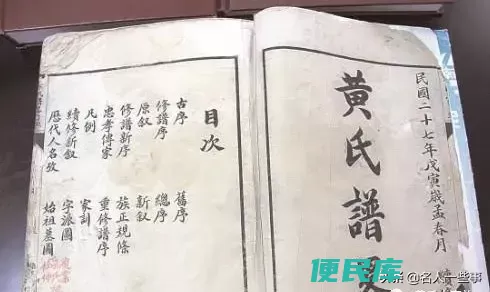 民國二十七年戊寅歲孟春月
黃氏譜
目次
古序 舊序
修譜序 總序
原叙 新叙
修譜新序 族正規條
忠孝傳家 重修譜序
凡例 家訓
續修新叙 字派圖
歷代人名攷 始祖墓圖
便民库
头条 @名人一些事